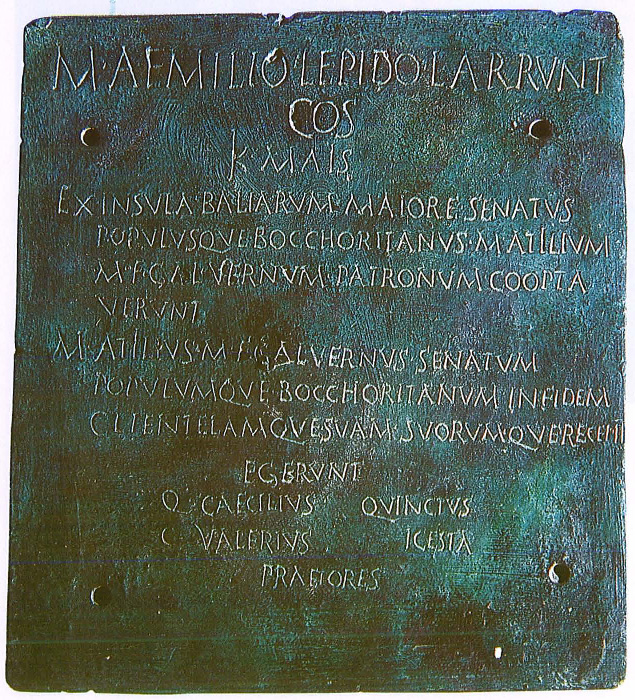 M·AEMILIO·LEPIDO·L ARRVNT
COS
K MAIS
EX INSVLA BALIARVM MAIORE SENATVS
POPVLVSQVE BOCCHORITANVS·M ATILIVM
M F GAL VERNVM PATRONVM COOPTA
VERVNT
M ATILIVS·M F GAL VERNVS SENATVM
POPVLVMQVE BOCCHORITANVM IN FIDEM
CLIENTELAMQVE SVAM SVORVMQVE RECEPIT
EGERVNT
Q CAECILIVS QVINCTVS
C VALERIVS ICESTA
PRAETORES